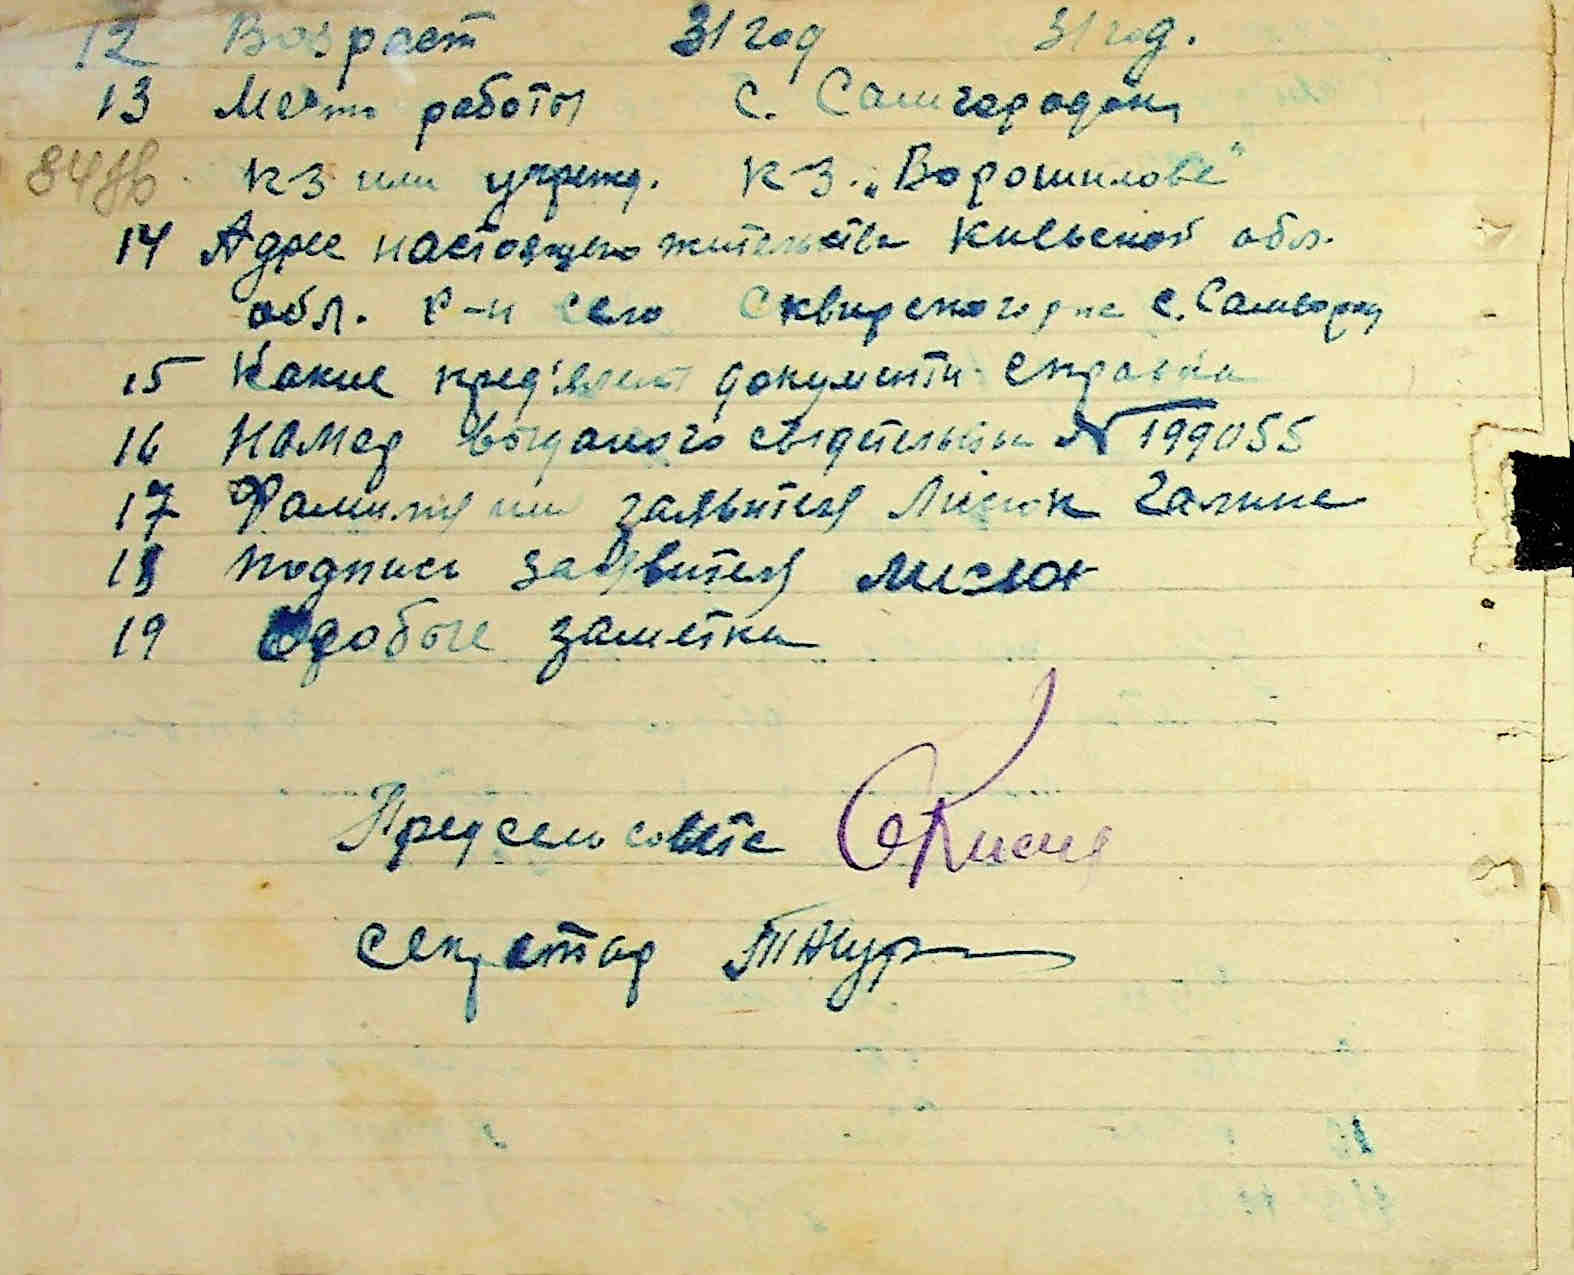 12 Возраст 31 год 31 год.
13 Место работы с. Самгородок
КЗ или учрежд. КЗ. „Ворошилова"
14 Адрес настоящего жительства Киевской обл.
обл. р-н село Сквирского р-на с. Самгород
15 Какие пред'явлены документи справка
16 Намер выданого свидетельства № 199055
17 Фамилия имя заявителя Лисюк Галина
18 подпись заявителя Лисюк
19 Одобые заметки
Предсельсовета
секретар